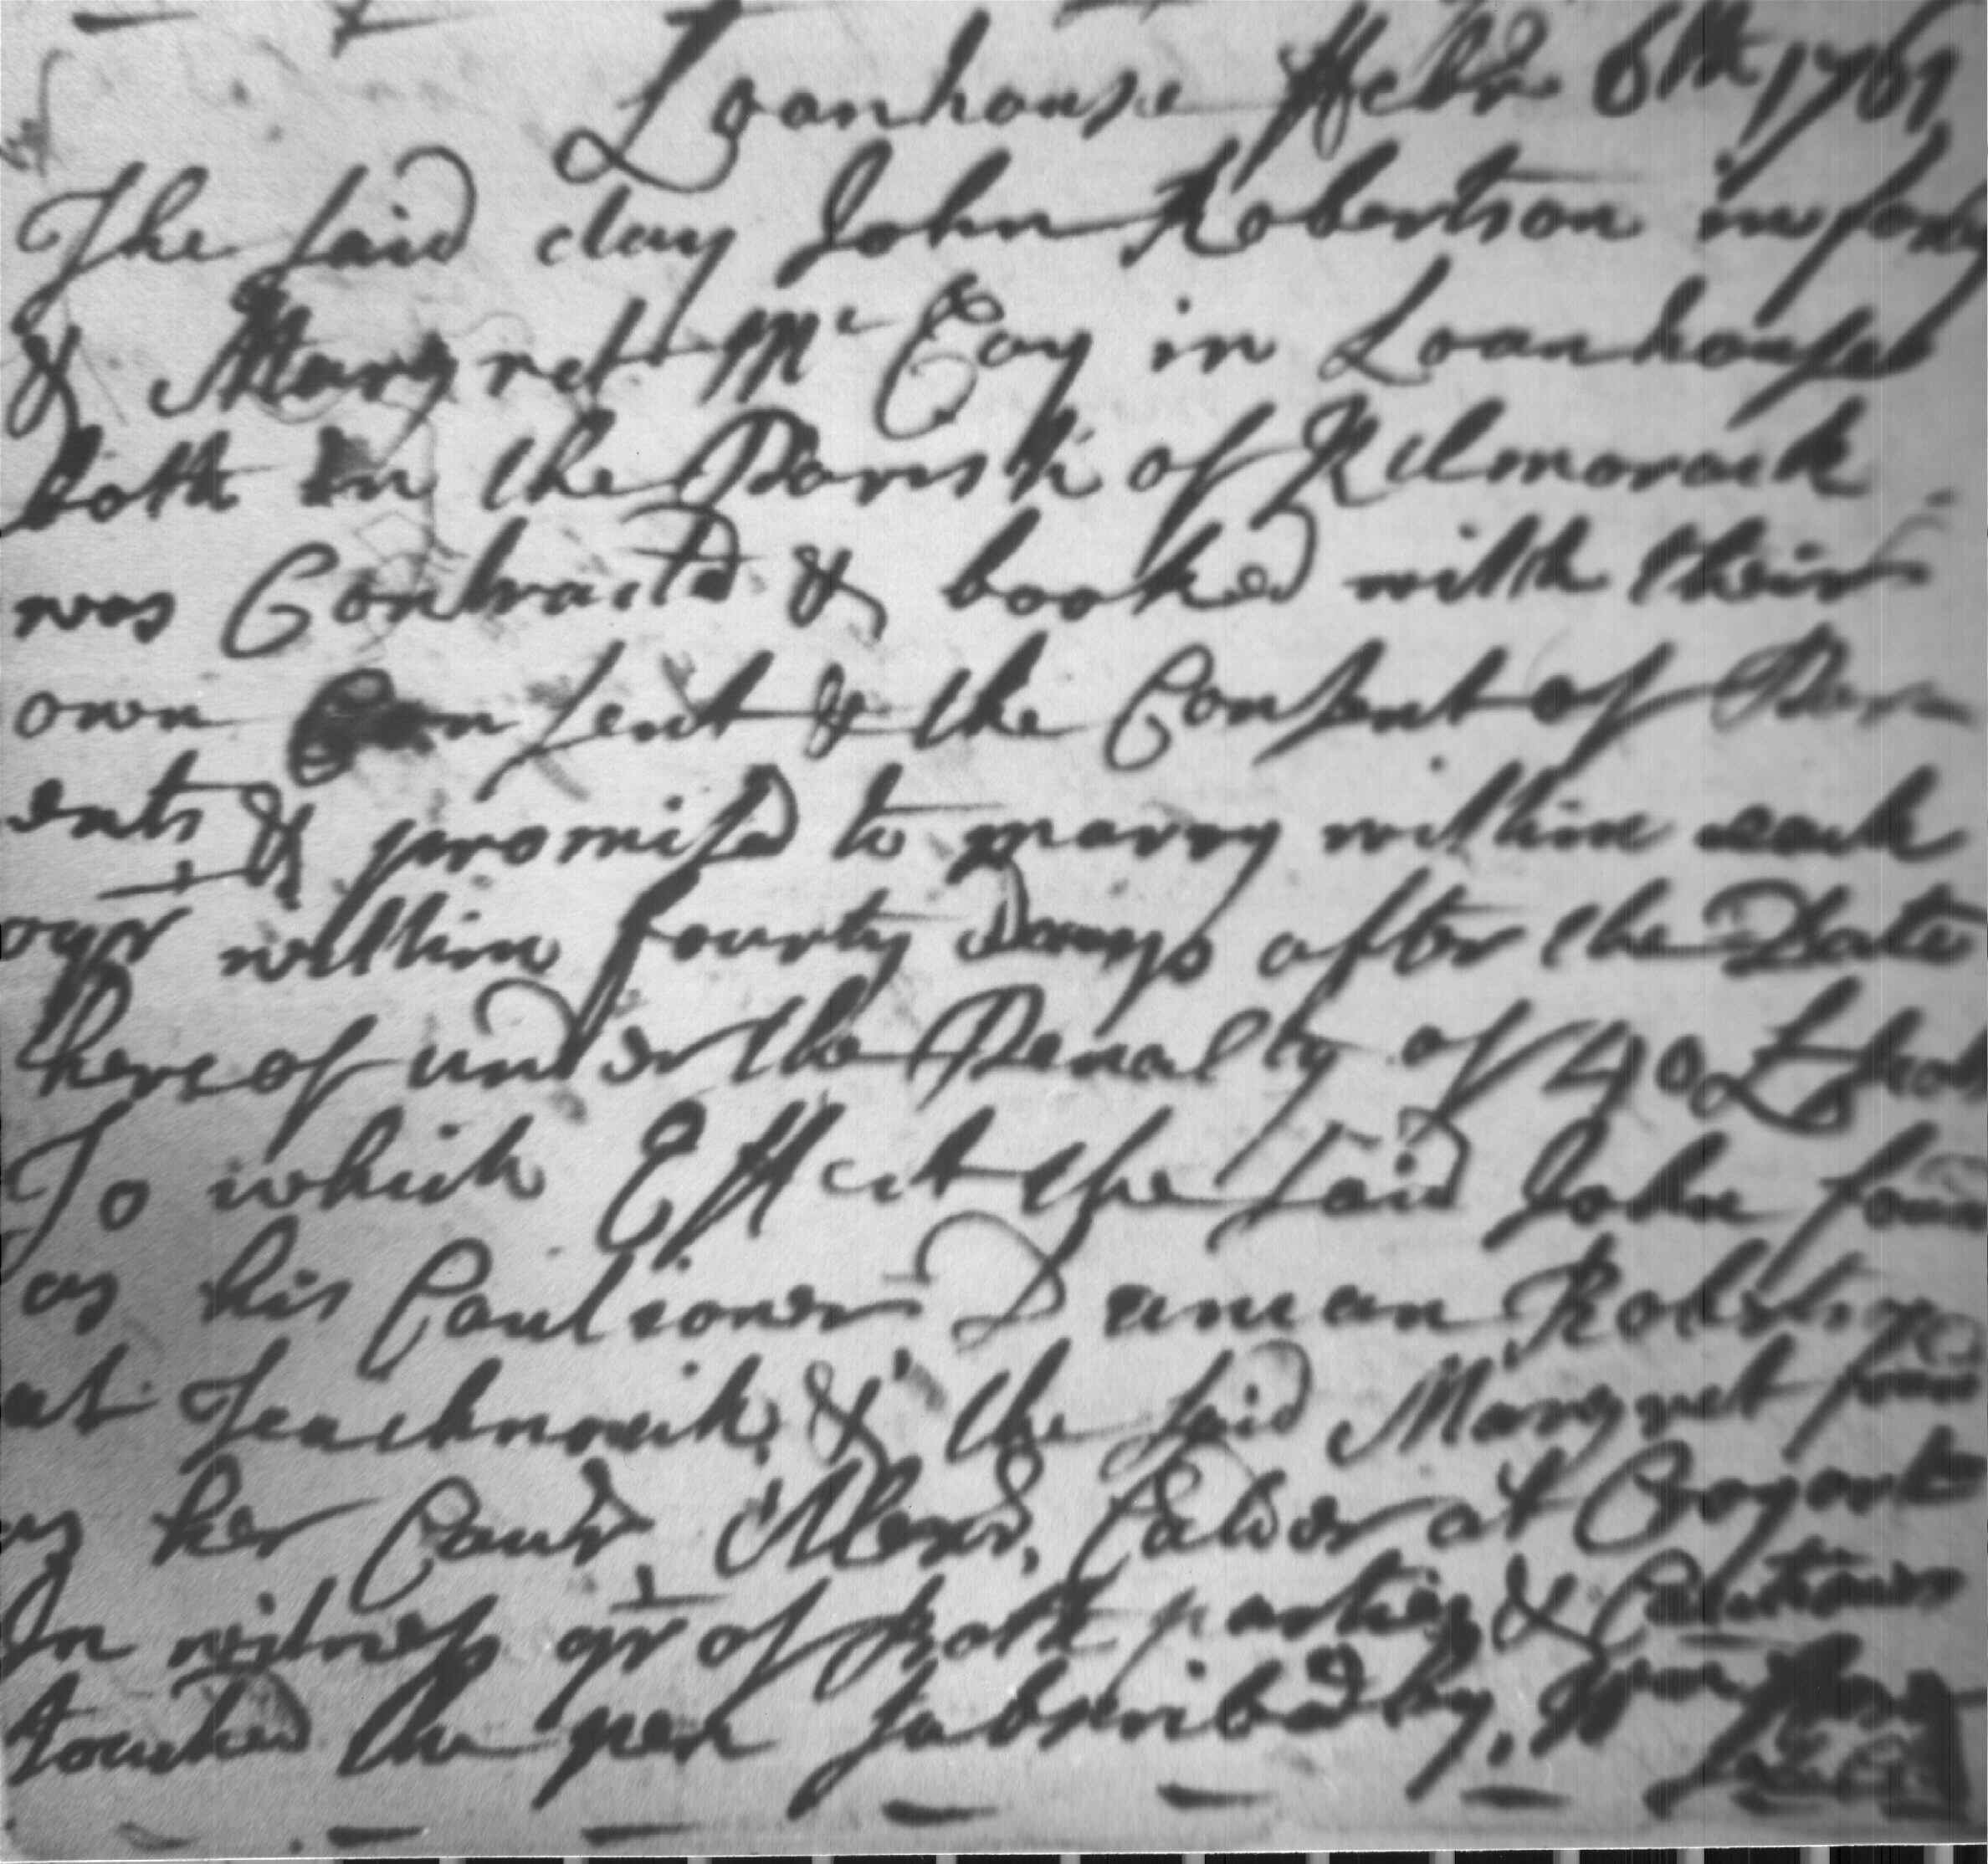 Loanhouse ffebr 6th 1761
The said day John Robertson in
& Margret Mc Coy in Loanhouse
both in the Parish of Kilmorack
was Contractd & booked with their
own Consent & the Consent of Par
ents & promisd to marry within each
oyr within fourty Days after the Date
hereof under the Penalty of 40 L
To which Effect the said John foun
as his Cautioner Duncan Robertson
at Teachnuick & the said Margret foun
as her Cautr. Alexr. Calder at
In witness qrof both parties & Cautioners
touched the pen Subscribed by, Wm